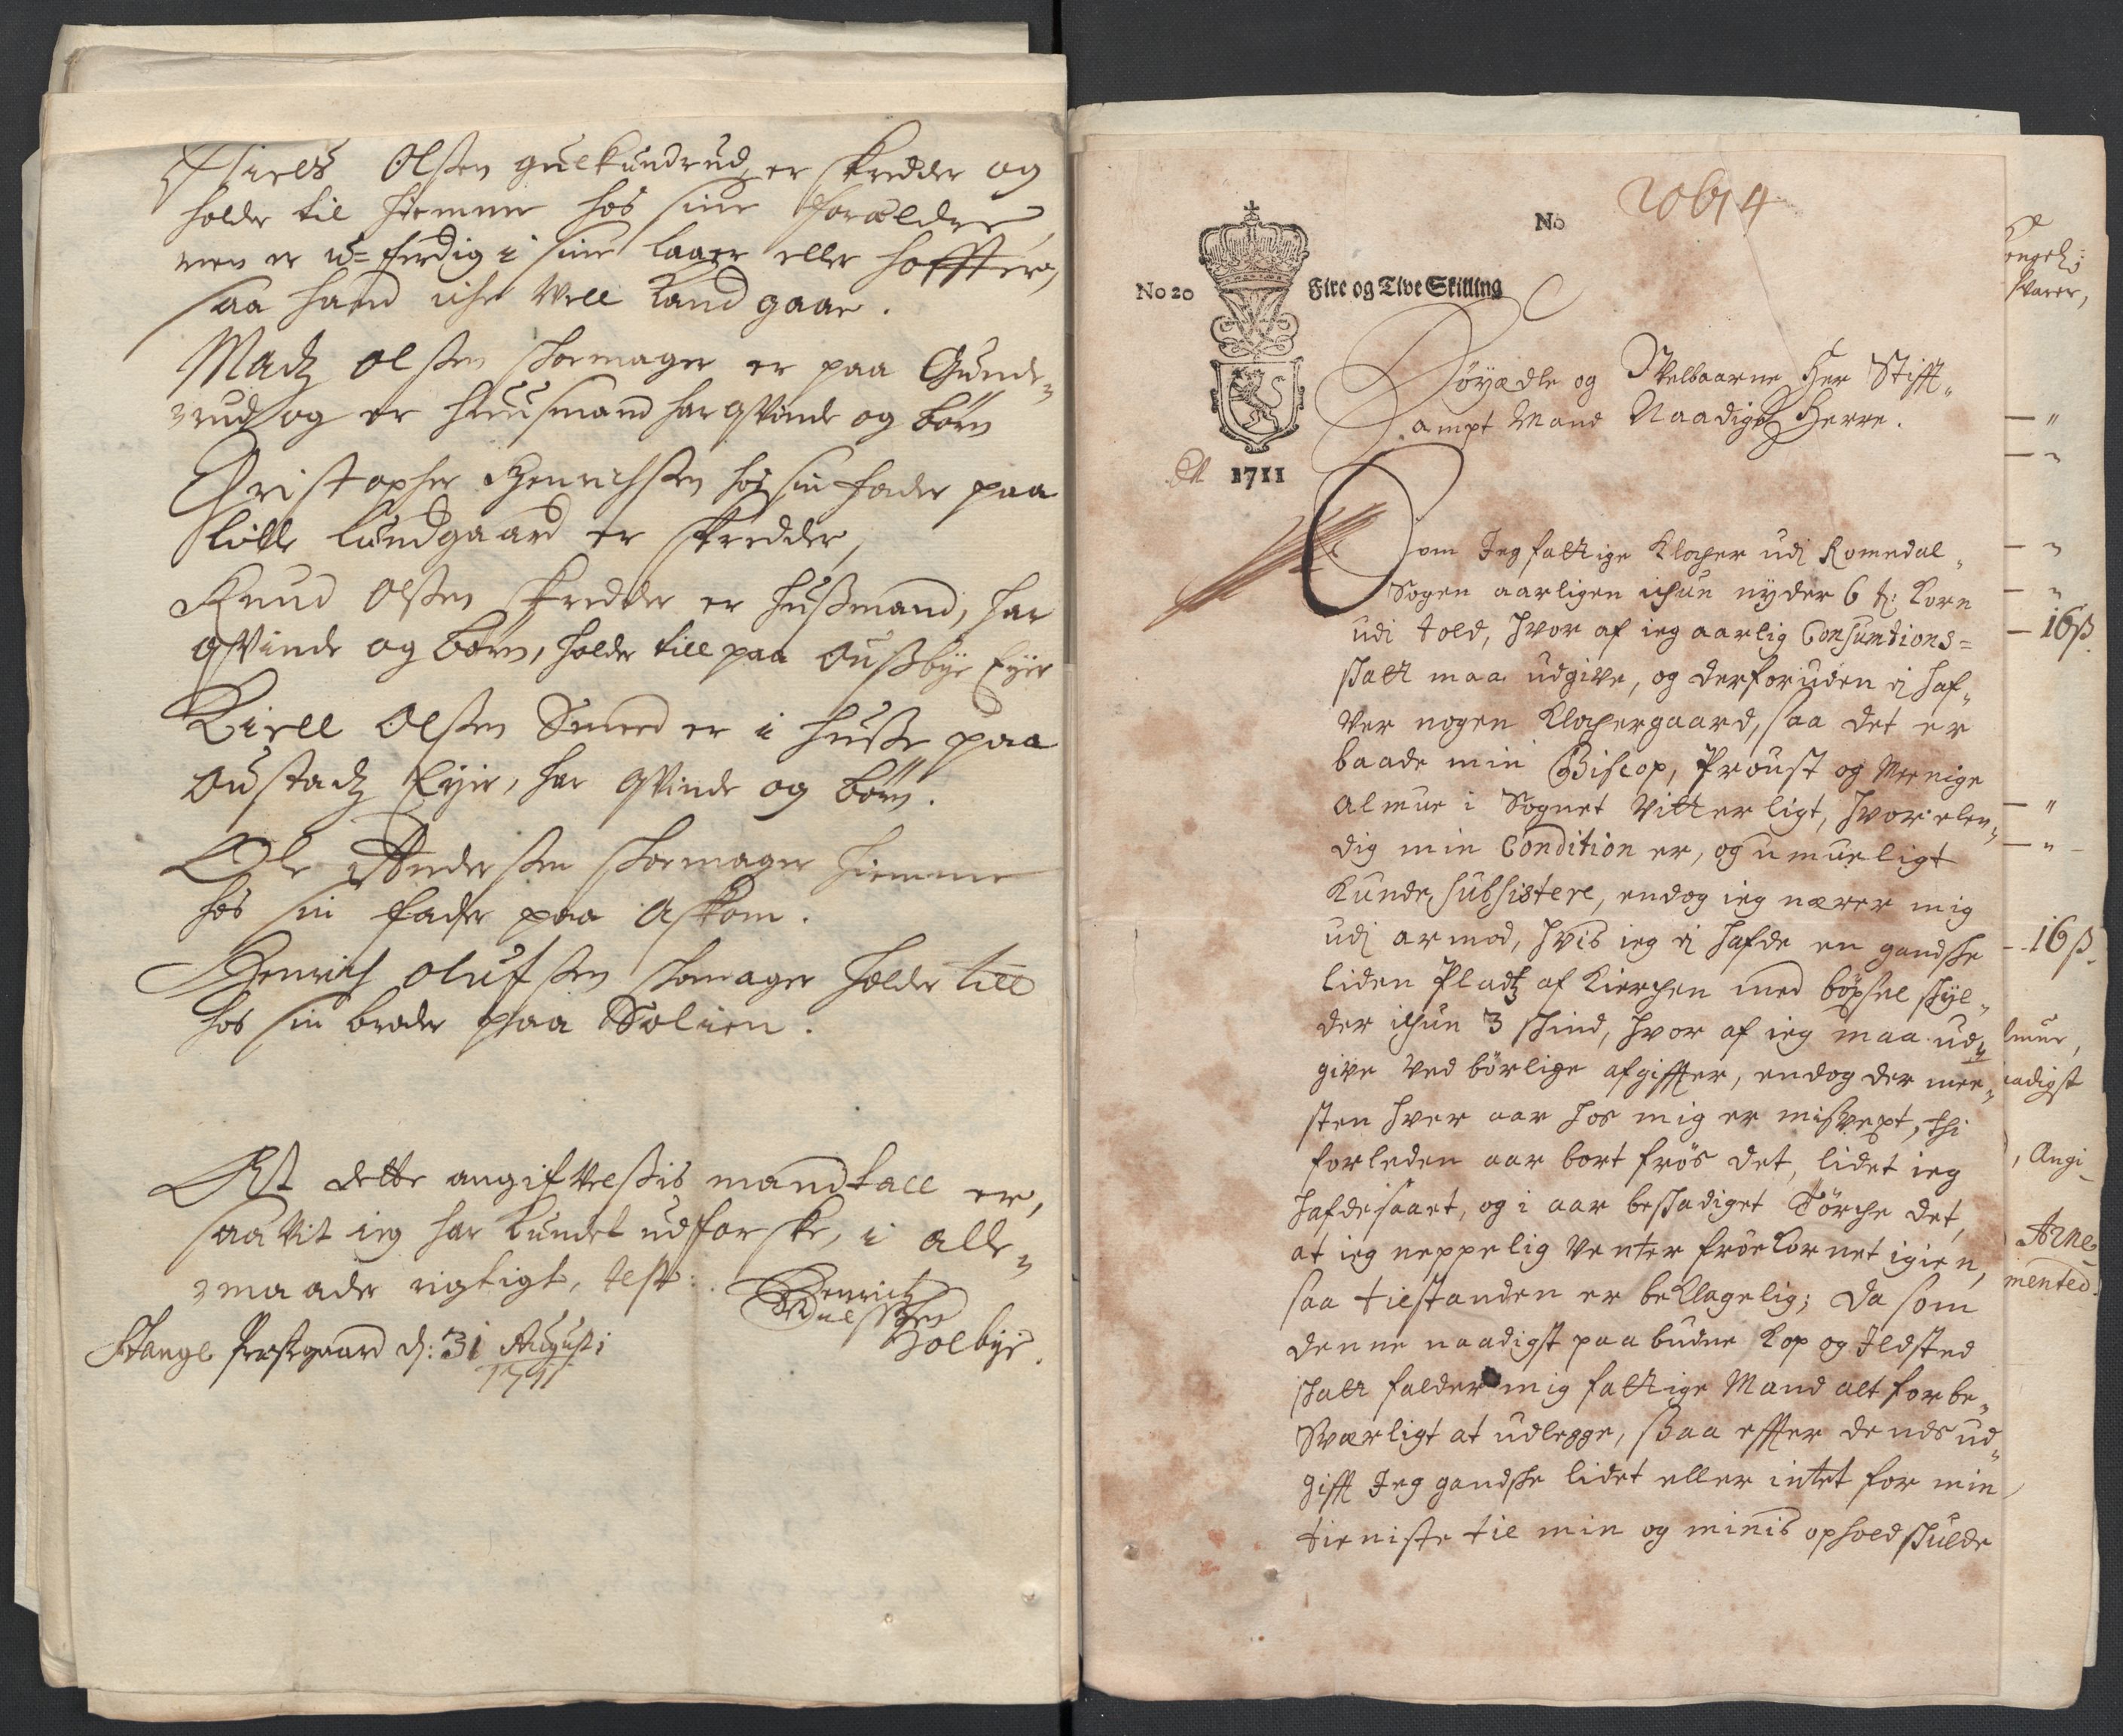 Niels Olßen gulkundrud er skredder og
holder til hiemme hos sine Forældre,
men er u-ferdig i sine laaer eller hoffter,
saa hand iche Vell kand gaae.
Madz Olßen skomager er paa Gunde-
rud og er huusmand har qvinde og börn
Christopher Henrichßen hos sin fader paa
Lille Lundgaard er skredder,
Knud Olßen skredder er husmand, har
qvinde og börn, holder till paa Ousbye Eyer
Kield Olßen Smed er i huße paa
Oustadz Eyer, har qvinde og börn.
Ole Anderßen skomager hiemme
hos sin fader paa Askom.
Henrich Olufßen skomager holder till
hos sin broder paa Solien.
At dette angifvelßis mandtall er,
saavit ieg har kundet udforske, i alle
maader rigtigt, test: Henrich
Holbye.
Stange Prestgaard d: 31 Augusti
1711
No 20614
No 20 Fire og Tive Skilling
Höyædle og Velbaarne Her Stifft-
ampt Mand Naadige Herre.
1711
Som Jeg fattige Klocher udi Romedal
Sogen aarligen ichun nyder 6 tr: Korn
udi told, hvor af ieg aarlig Consumtions-
skatt maa udgive, og derforuden ej haf-
ver nogen Klochergaard, saa det er
baade min Biscop, Proust og Menige
almue i Sognet vitterligt, hvor elen-
dig min Condition er, og umueligt
kunde subsistere, endog ieg nærer mig
udi armod, hvis ieg ej hafde en gandske
liden Pladtz af Kierchen med böxsel skyl-
der ichun 3 skind, hvor af ieg maa ud-
give ved börlige afgiffter, endog der mee-
sten hver aar hos mig er misvext, thi
forleden aar bort frös det, lidet ieg
hafde saaet, og i aar beskadiget Törche det,
at ieg neppelig venter fröekornet igien,
saa tilstanden er beklagelig; da som
denne naadigst paabudne Kop og Ildsted
skatt falder mig fattige Mand alt for be-
sværligt at udlegge, ßaa effter dends ud-
gifft Jeg gandske lidet eller intet for min
tieniste til min og minis ophold skulde
svarer,
16ß
16ß.
lmue,
aadigst
, Angi-
Arne
mented.